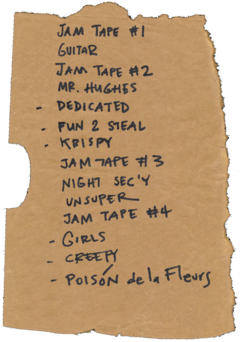 JAM TAPE #1
GUITAR
JAM TAPE #2
MR. HUGHES
- DEDICATED
- FUN 2 STEAL
- KRISPY
JAM TAPE #3
NIGHT SEC'Y
UNSUPER
JAM TAPE #4
- GIRLS
- CREEPY
- POISÓN de la Fleurs